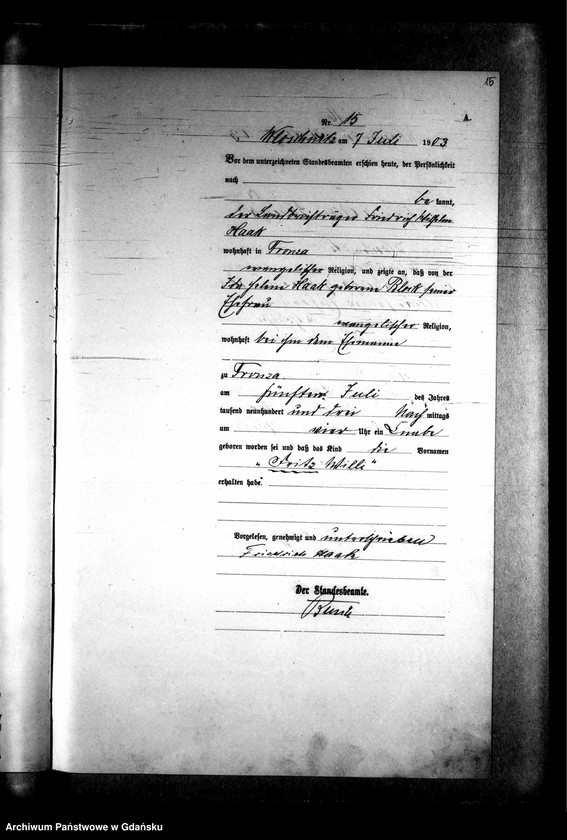 15
A.
Nr. 15
am 7 Juli 1903
Vor dem unterzeichneten Standesbeamten erschien heute, der Persönlichkeit
nach
be kannt,
der Landbriefträger Friedrich Wilhelm
Haak
wohnhaft in Fronza
evangelischer Religion, und zeigte an, daß von der
Haak geborene Block seiner
Ehefrau
evangelischer Religion,
wohnhaft bei ihm dem Ehemanne
zu Fronza
am fünften Juli des Jahres
tausend neunhundert und drei Nach mittags
um vier Uhr ein Knabe
geboren worden sei und daß das Kind die Vornamen
„Fritz Willi“
erhalten habe.
Vorgelesen, genehmigt und unterschrieben
Friedrich Haak
Der Standesbeamte.
Archiwum Państwowe w Gdańsku